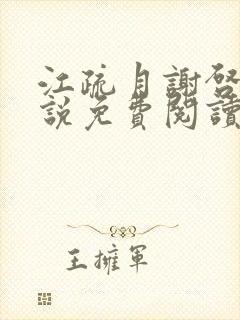 江疏月謝啓
說免費閱讀
王擁軍